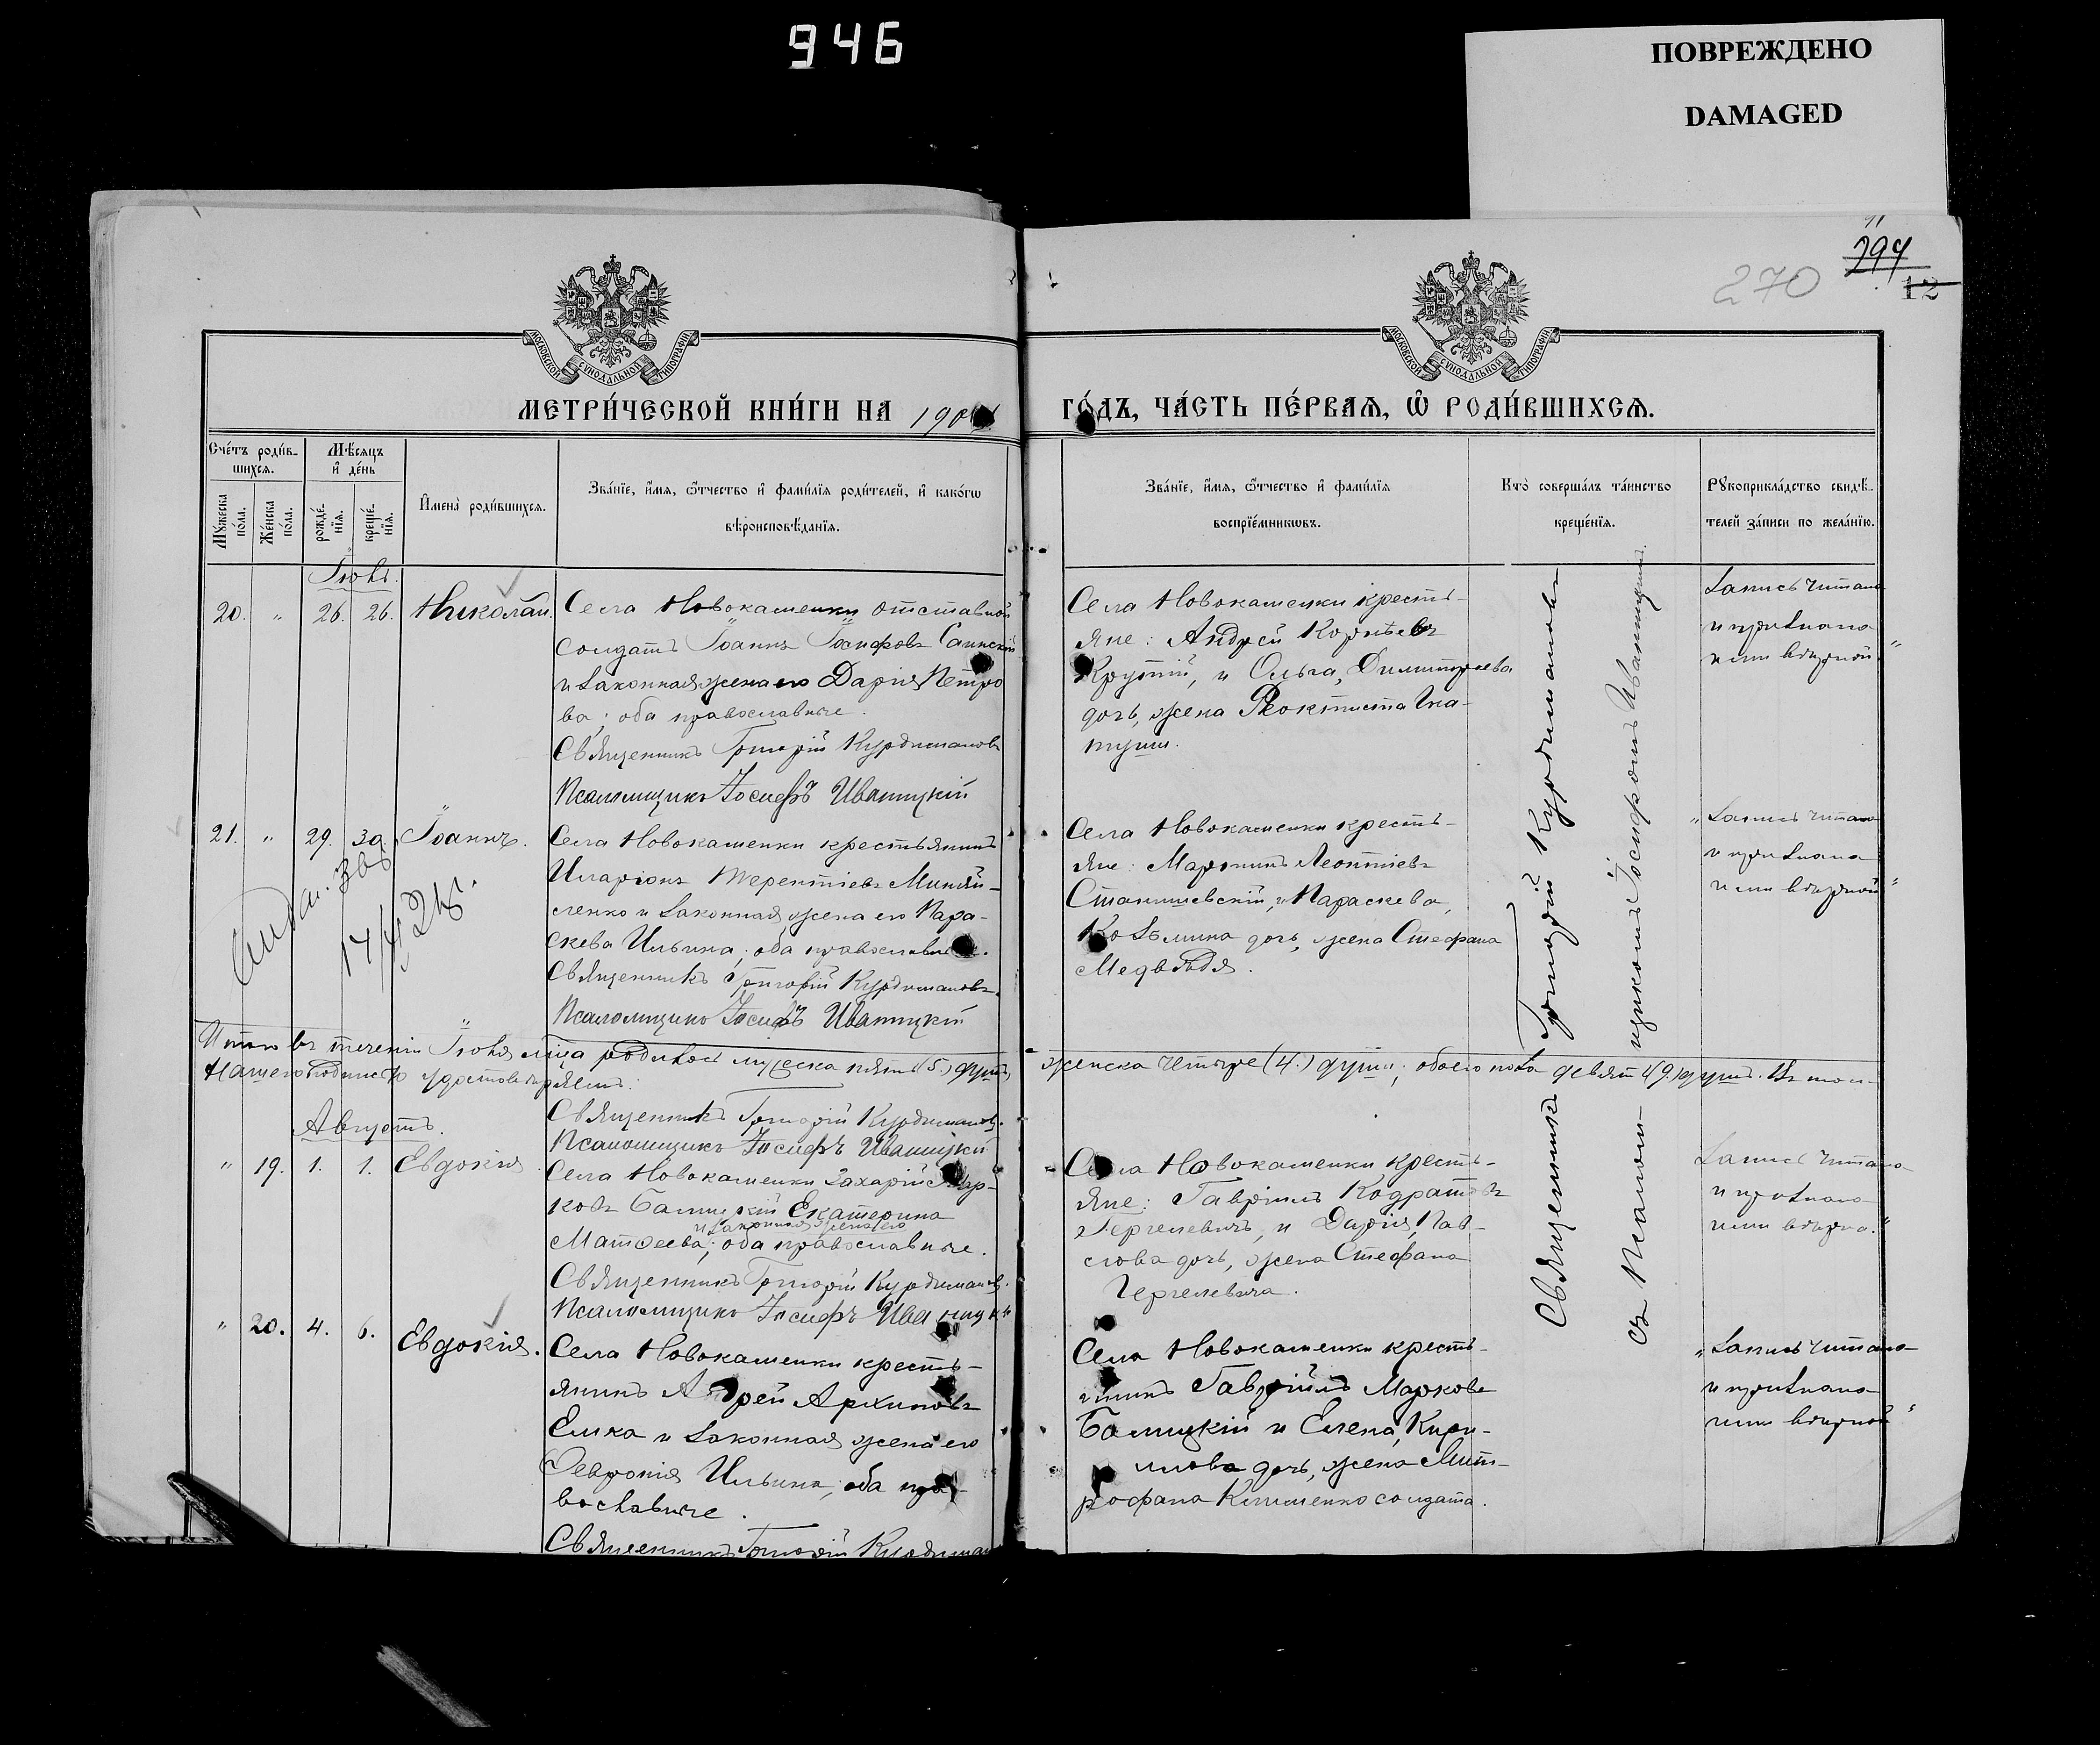 946
ПОВРЕЖДЕНО
DAMAGED
91
294
270
12
МОСКОВСКОЙ СѴНОДАЛЬНОЙ ТИПОГРАФІИ
МОСКОВСКОЙ СѴНОДАЛЬНОЙ ТИПОГРАФІИ
МЕТРИ́ЧЕСКОЙ КНИ́ГИ НА 190
ГО́ДЪ, ЧА́СТЬ ПЕ́РВАЯ, Ѽ РОДИ́ВШИХСЯ.
Сче́тъ роди́в-
шихся.
Мѣ́сяцъ
и҆ де́нь
Мꙋ́жеска по́ла.
Же́нска по́ла.
рожде́нїя.
креще́нїя.
И҆мена̀ роди́вшихся.
Зва́нїе, и҆́мя, ѻ҆́тчество и҆ фами́лїя роди́телей, и҆ како́гѡ
вѣроисповѣ́данїя.
Зва́нїе, и҆́мя, ѻ҆́тчество и҆ фами́лїя
воспрїе́мникѡвъ.
Кто̀ соверша́лъ та́инство
креще́нїя.
Рꙋкоприкла́дство свидѣ́-
телей за́писи по жела́нїю.
Іюль.
20. " 26. 26. Николай.
Села Новокаменки отставной
солдатъ Іоаннъ Іосифовъ
и законная жена его Дарія Петро
ва; оба православные.
Священникъ Григорій Курдимановъ
Псаломщикъ Іосифъ Иваницкій
Села Новокаменки кресть-
яне: Андрей Корнѣевъ
Крутій, и Ольга, Димитріева
дочь, жена Ѳеоктиста Гна-
туши.
Запись читана
и признана
ими вѣрной."
21. " 29. 30. Іоаннъ.
Села Новокаменки крестьянинъ
Иларіонъ Терентіевъ
ленко и законная жена его Пара-
скева Ильина; оба православные.
Священникъ Григорій Курдимановъ.
Псаломщикъ Іосифъ Иваницкій
Села Новокаменки кресть-
яне: Мартинъ Леонтіевъ
Станишевскій, и Параскева,
Козьмина дочь, жена Стефана
Медвѣдя.
"Запись читана
и признана
ими вѣрной"
Итого въ теченіи Іюля м-ца родилось мужеска пять (5.) душъ,
женска четыре (4.) души; обоего пола девять (9.) душъ. Въ томъ
нашею подписью удостовѣряемъ:
Священникъ Григорій Курдимановъ.
Псаломщикъ Іосифъ Иваницкій
Августъ.
" 19. 1. 1. Евдокія.
Села Новокаменки Захарій Мар-
ковъ Балицкій Екатерина
и законная жена его
Матѳеева; оба православные.
Священникъ Григорій Курдимановъ.
Псаломщикъ Іосифъ Иваницкій
Села Новокаменки кресть-
яне: Гавріилъ Кодратовъ
Гергелевичъ, и Дарія, Пав-
лова дочь, жена Стефана
Гергелевича.
Запись читана
и признана
ими вѣрно."
" 20. 4. 6. Евдокія.
Села Новокаменки кресть-
янинъ Андрей Архиповъ
Елика и законная жена его
Февронія Ильина; оба пра-
вославные.
Священникъ Григорій Курдиман
Села Новокаменки кресть-
янинъ Гавріилъ Марковъ
Балицкій и Елена, Кири-
лова дочь, жена Мит-
рофана Клименко солдата.
"Запись читана
и признана
ими вѣрной"
Священникъ Григорій Курдимановъ
съ Псалом-щикомъ Іосифомъ Иваницкимъ.